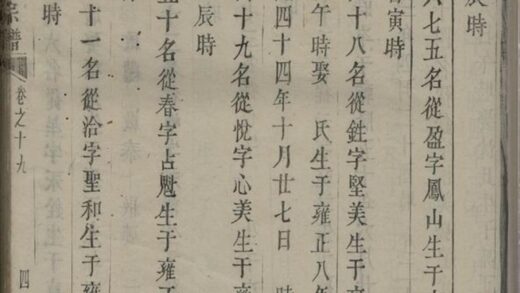 辰時
七五名從盈字鳳山生于
寅時
十八名從鉎字堅美生于
午時娶 氏生于雍正八年
四十四年十月廿七日 時
十九名從悅字心美生于雍
辰時
五十名從春字占魁生于雍
十一名從洽字聖和生于雍
時
宗譜 卷之十九 四